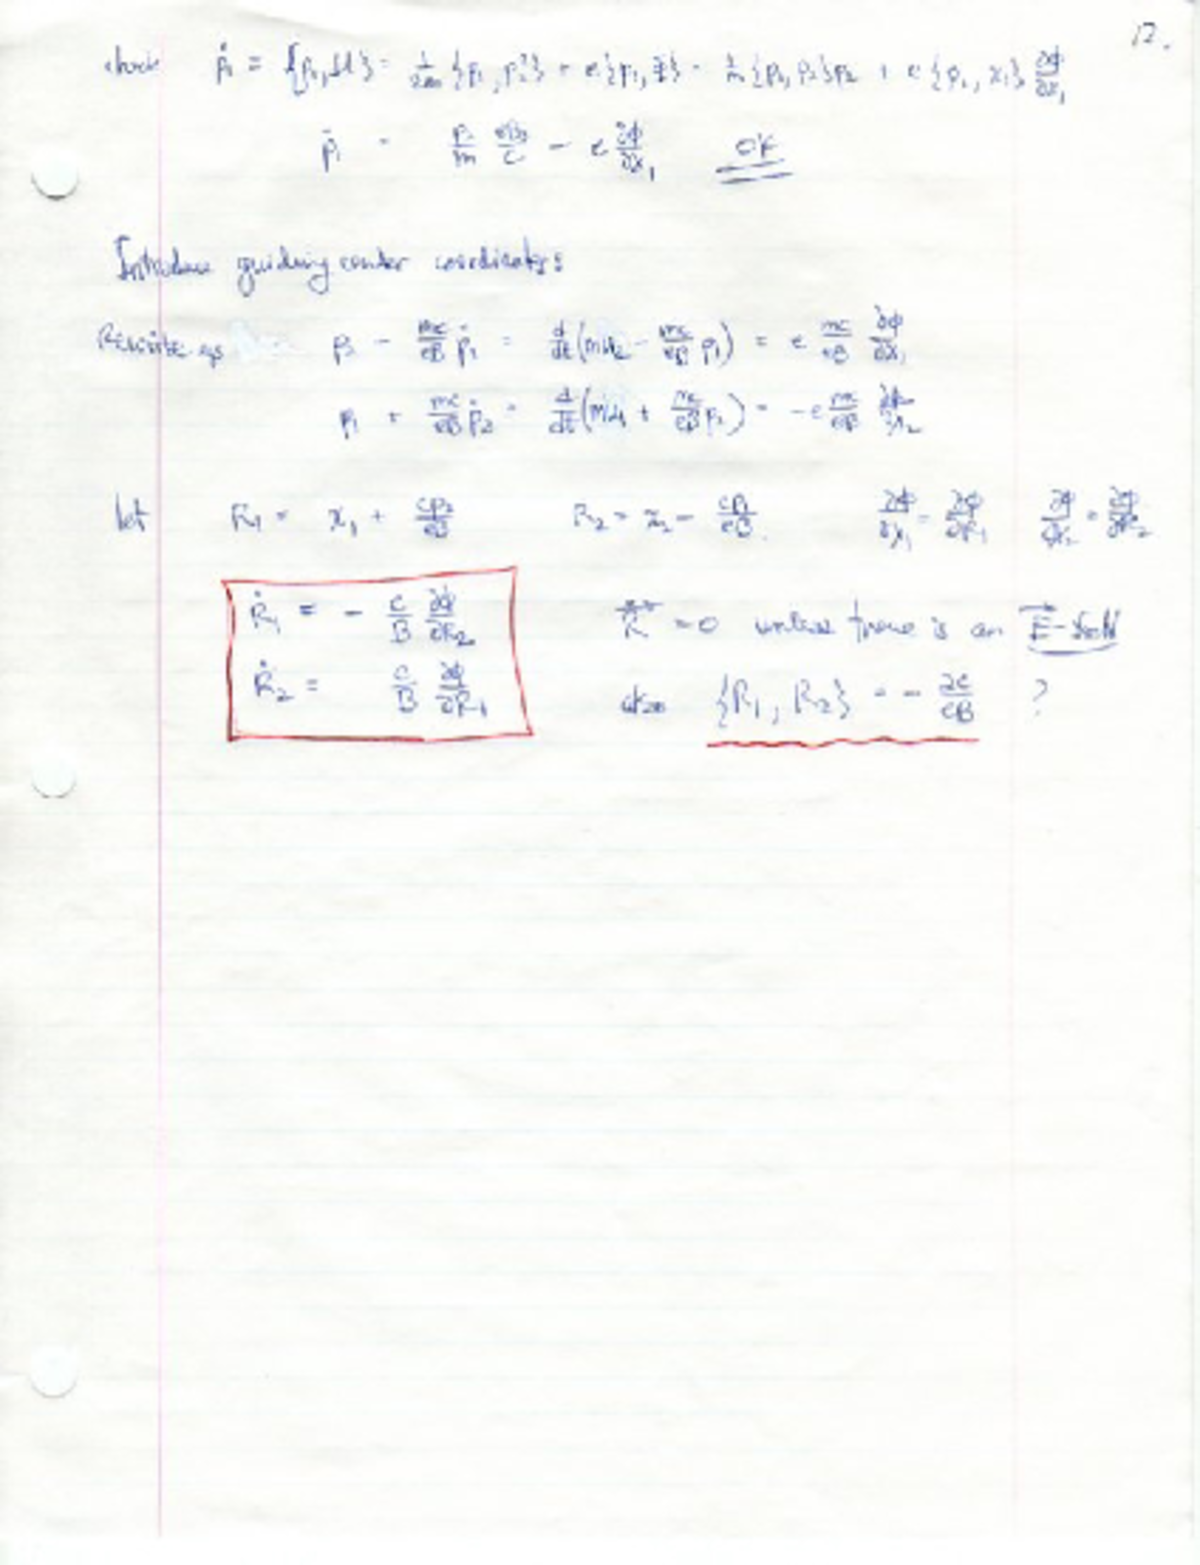 12.
check ṗ₁ = {p₁, H} = 1/2m {p₁, p₂²} + e{p₁, Φ} = 1/m {p₁, p₂}p₂ + e{p₁, x₁} ∂Φ/∂x₁
ṗ₁ = p₂/m eB/c − e ∂Φ/∂x₁ OK
Introduce guiding center coordinates:
Rewrite eqs p₂ − mc/eB ṗ₁ = d/dt(mx₂ − mc/eB p₁) = e mc/eB ∂Φ/∂x₁
p₁ + mc/eB ṗ₂ = d/dt(mx₁ + mc/eB p₂) = −e mc/eB ∂Φ/∂x₂
let R₁ = x₁ + cp₂/eB R₂ = x₂ − cp₁/eB. ∂Φ/∂x₁ = ∂Φ/∂R₁ ∂Φ/∂x₂ = ∂Φ/∂R₂
Ṙ₁ = − c/B ∂Φ/∂R₂ Ṙ = 0 unless there is an E-field
Ṙ₂ = c/B ∂Φ/∂R₁ also {R₁, R₂} = − 2c/eB ?